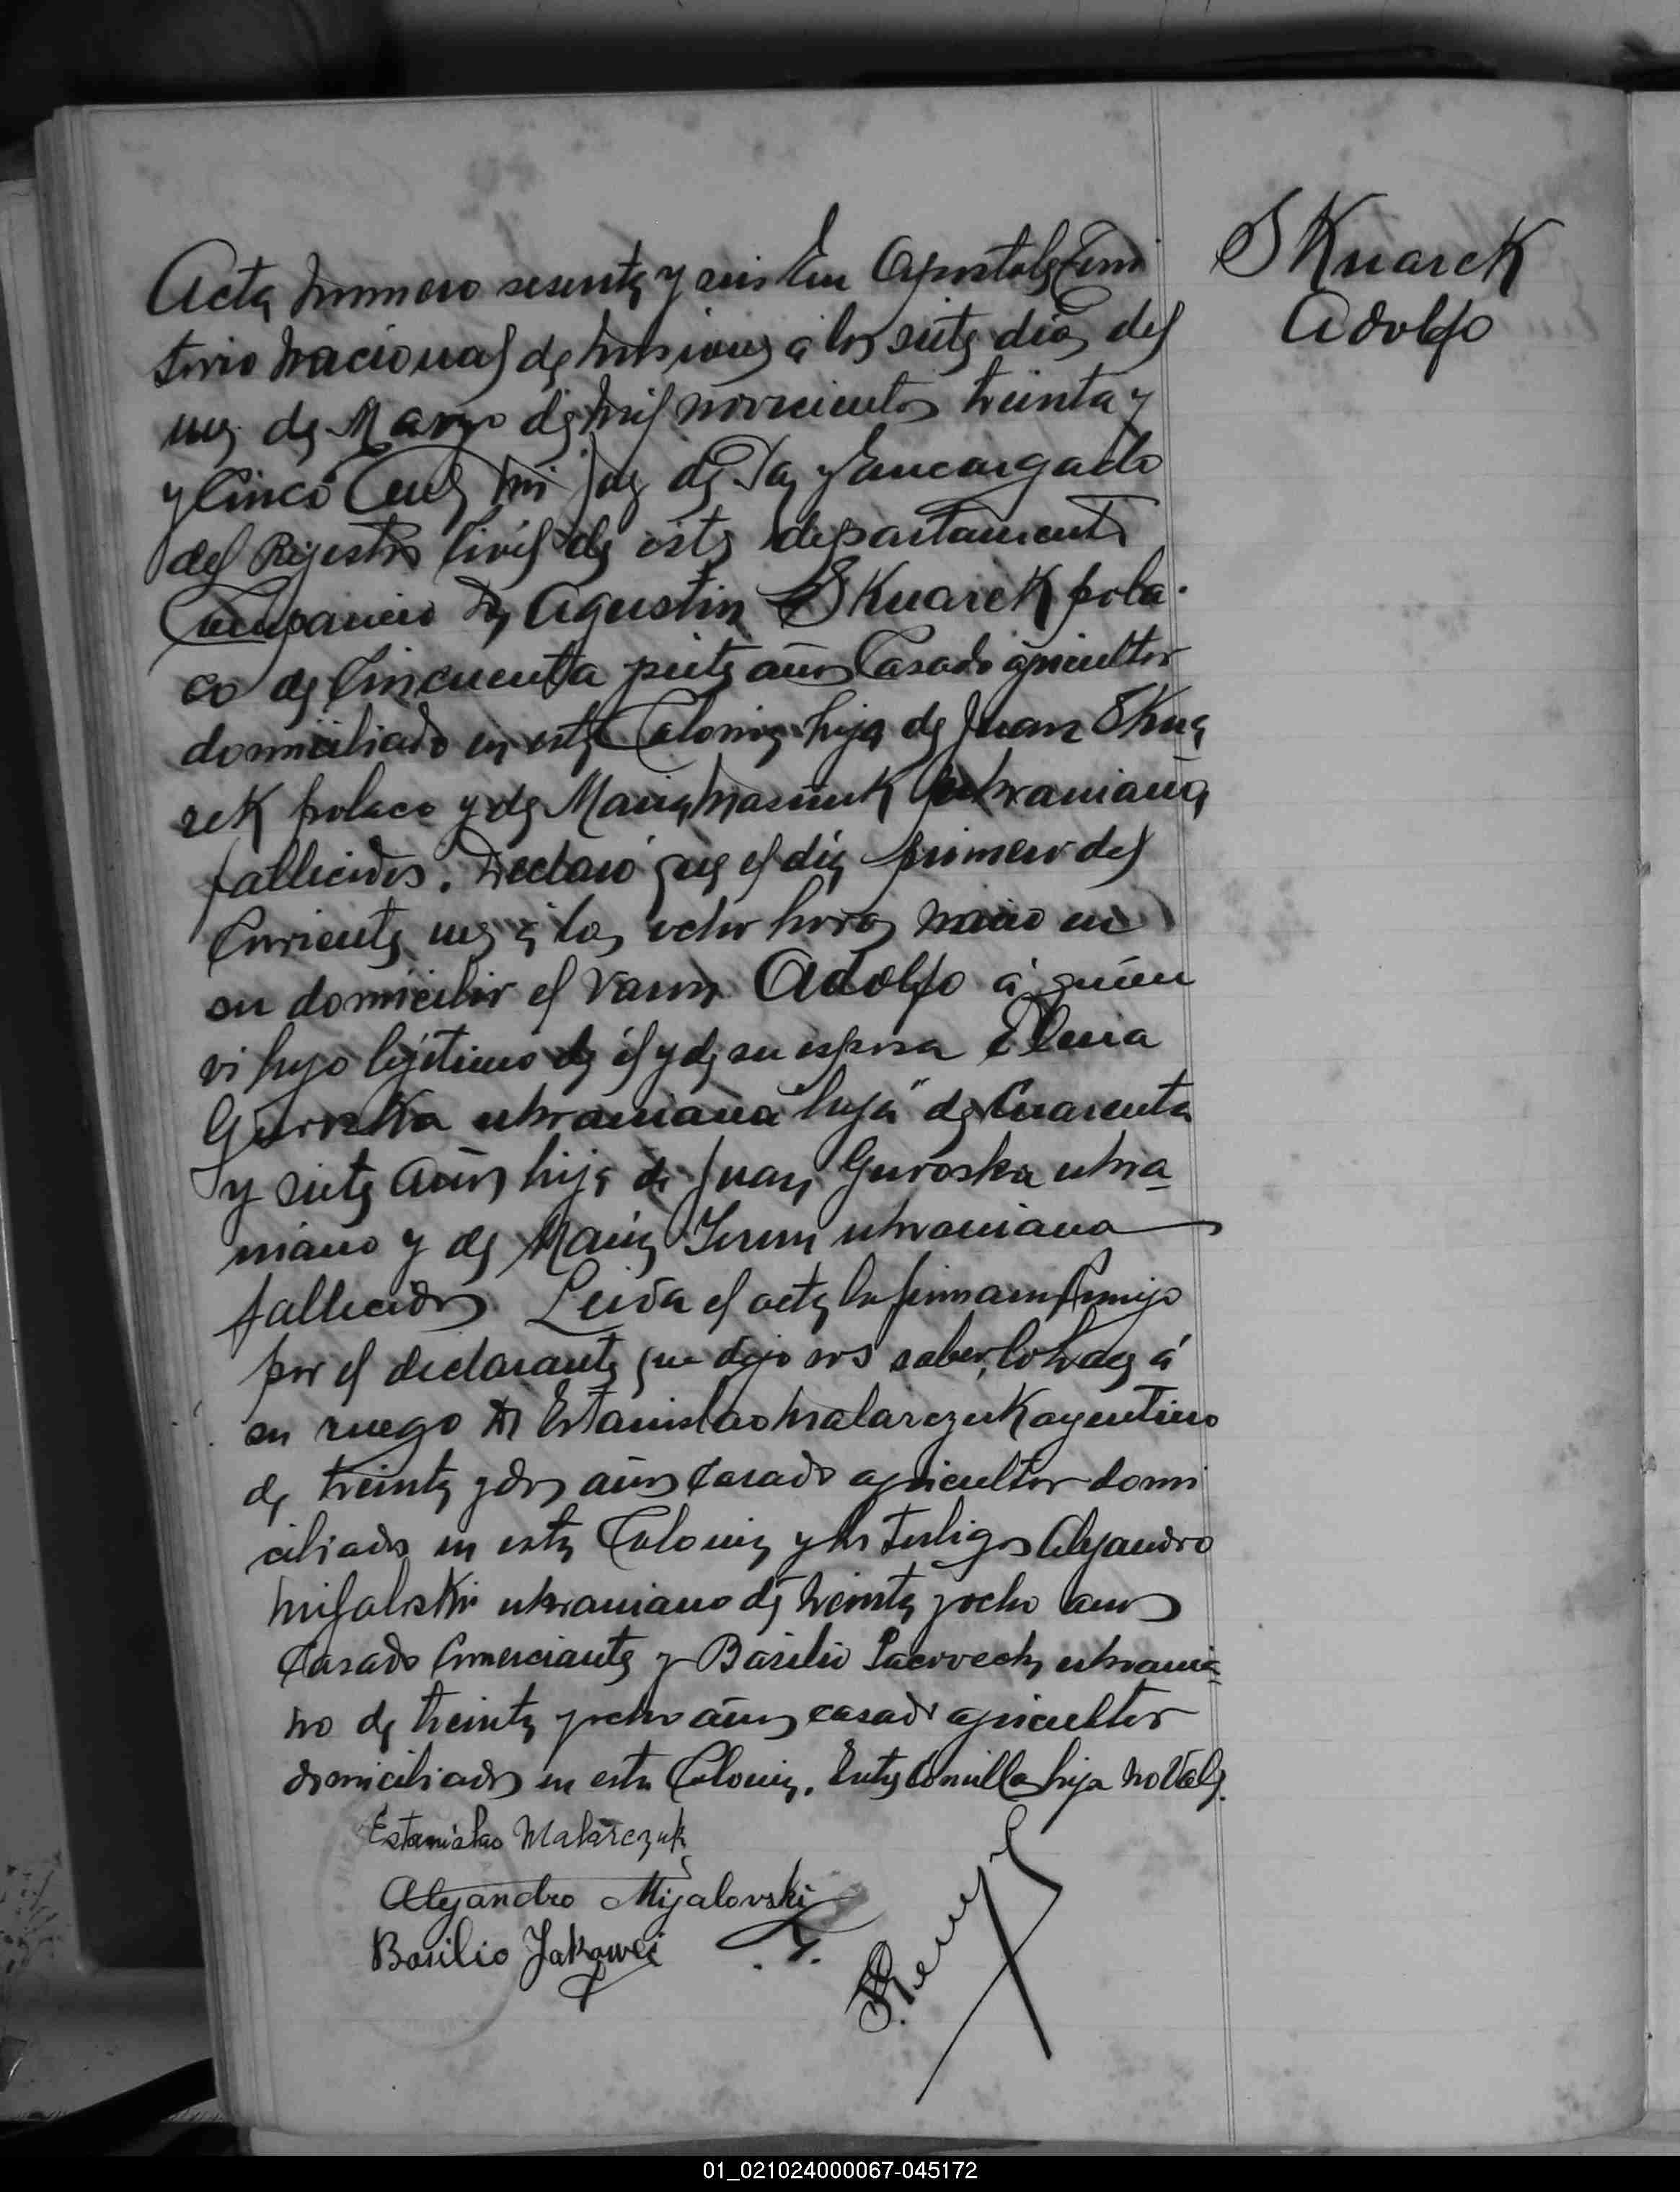 SKuarek
Adolfo
Acta numero sesenta y seis En Apostoles Terri
torio Nacional de Misiones a los siete dias del
mes de Marzo de mil novecientos treinta y
y Cinco Ante mi Juez de Paz y Encargado
del Rejistro Civil de este departamento
Compareció Dn Agustin SKuareK pola-
co de Cincuenta siete años Casado agricultor
domiciliado en esta Colonia hijo de Juan Skua
reK polaco y de Maria ukraniana
fallecidos. Declaró que el dia primero del
Corriente mes a las ocho horas nació en
su domicilio el varon Adolfo á quien
vi hijo lejitimo de él y de su esposa Elena
Guroska ukraniana "hija" de Cuarenta
y siete años hija de Juan Guroska ukra-
niano y de Maria ukraniana
fallecidos Leida el acta la firmaron Conmigo
por el declarante que dijo nos saber, lo hace á
su ruego Dn Estanislao MalarczuK argentino
de treinta y dos años Casado agricultor domi
ciliado en esta Colonia y los testigos Alejandro
ukraniano de treinta y ocho años
Casado Comerciante y Basilio ukrania-
no de treinta y ocho años casado agricultor
domiciliados en esta Colonia. Entre Comillas hija no Vale.
Estanislao Malarczuk
Alejandro Mijalovski
Basilio
01_021024000067-045172